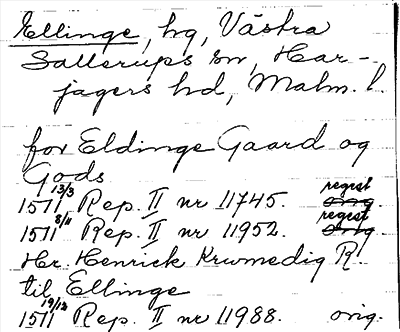 Ellinge, hg, Västra
Sallerups sn, Har-
jagers hd, Malm. l.
for Eldinge Gaard og
Gods
1511 13/3 Rep. II nr 11745. orig. regest
1511 8/11 Rep. II nr 11952. orig. regest
Hr. Henrick Krumedig R.
til Ellinge
1511 19/12 Rep. II nr 11988. orig.